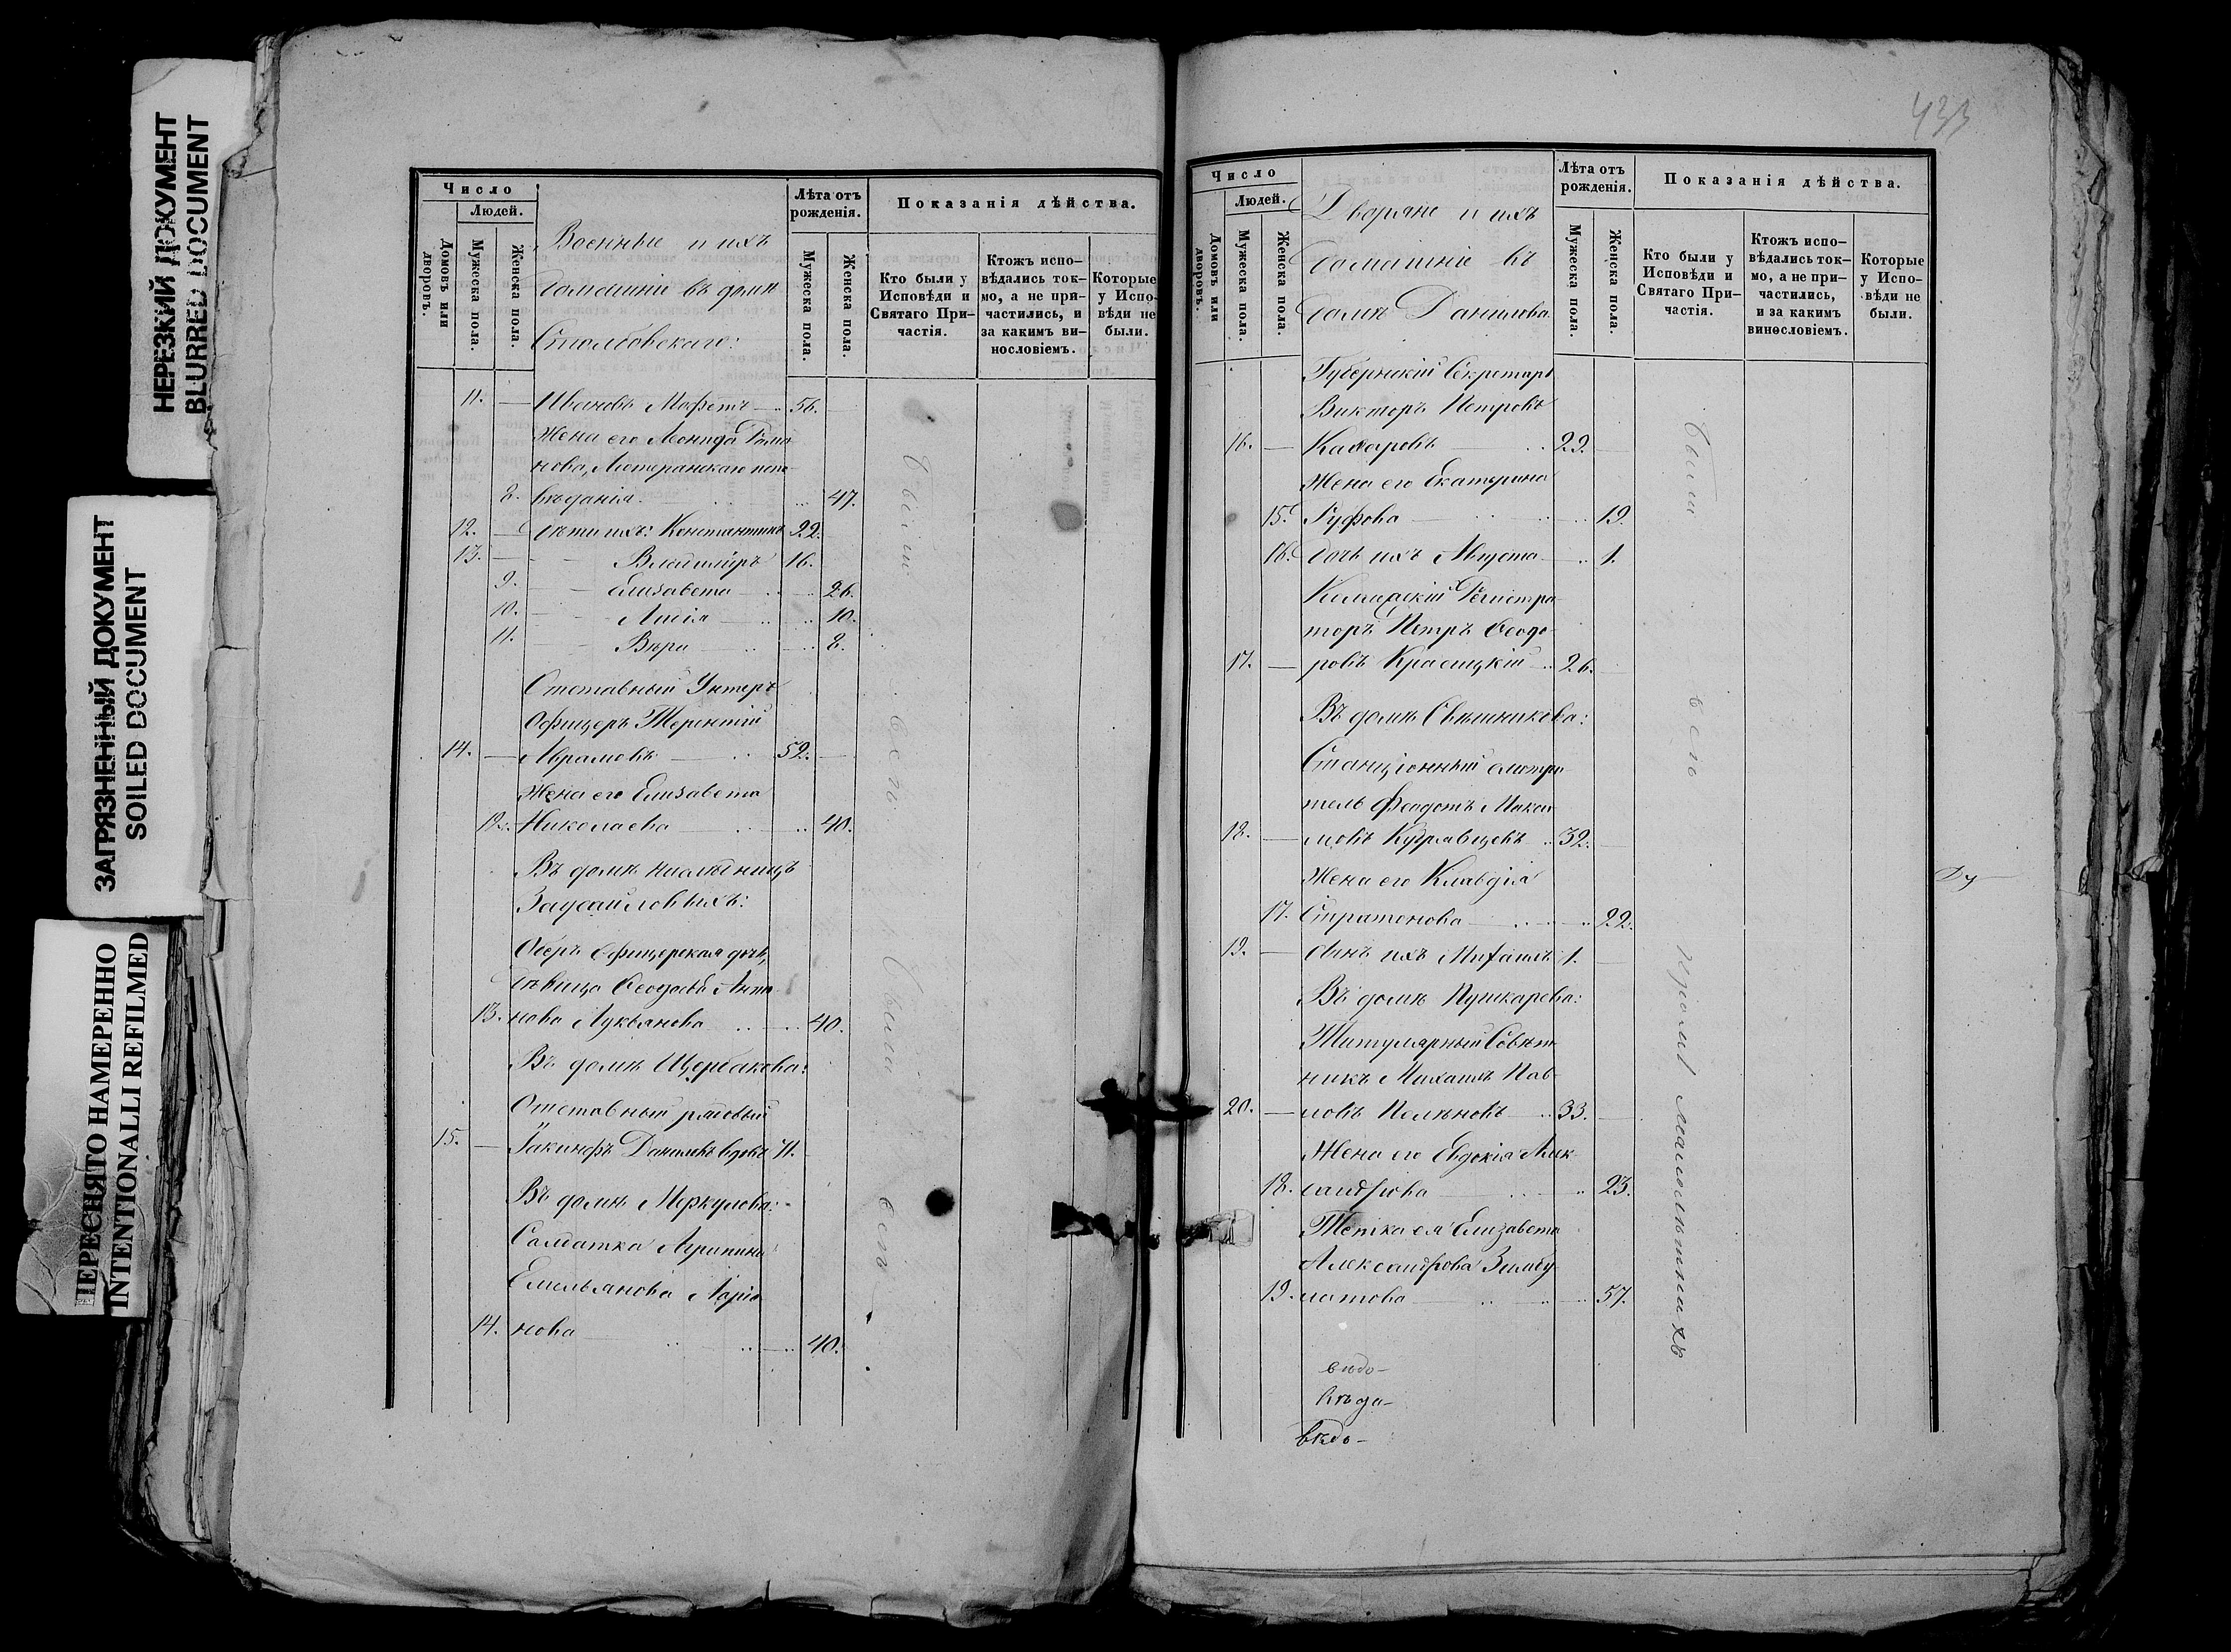 НЕРЕЗКИЙ ДОКУМЕНТ
BLURRED DOCUMENT
ЗАГРЯЗНЕННЫЙ ДОКУМЕНТ
SOILED DOCUMENT
ПЕРЕСНЯТО НАМЕРЕННО
INTENTIONALLI REFILMED
Число
Людей.
Домовъ или дворовъ.
Мужеска пола.
Женска пола.
Военные и ихъ
домашніе въ домѣ
Столбовскаго:
Лѣта отъ
рожденія.
Мужеска пола.
Женска пола.
Показанія дѣйства.
Кто были у
Исповѣди и
Святаго При-
частія.
Ктожъ испо-
вѣдались ток-
мо, а не при-
частились, и
за какимъ ви-
нословіемъ.
Которые
у Испо-
вѣди не
были.
11. — Ивановъ 56.
Жена его Рома
нова, Лютеранскаго испо
8. вѣданія 47.
12. — дѣти ихъ: Константинъ 22.
13. — Владиміръ 16.
9. Елизавета 26.
10. Лидія 10.
11. Вѣра 8.
Отставный Унтеръ
Офицеръ Терентій
14. — Аврамовъ 52.
Жена его Елизавета
12. Николаева 40.
Въ домѣ
Заусайловыхъ:
Оберъ Офицерская дочь,
дѣвица Анто
13. нова Лукьянова 40.
Въ домѣ Щербакова:
Отставный рядовый
15. — Іакинфъ Даниловъ вдовъ 71.
Въ домѣ Меркулова:
Солдатка Агрипина
Емельянова Ларіо
14. нова 40.
были
всѣ
были
всѣ
433
Число
Людей.
Домовъ или дворовъ.
Мужеска пола.
Женска пола.
Дворяне и ихъ
домашніе въ
домѣ Данилова
Лѣта отъ
рожденія.
Мужеска пола.
Женска пола.
Показанія дѣйства.
Кто были у
Исповѣди и
Святаго При-
частія.
Ктожъ испо-
вѣдались ток-
мо, а не при-
частились,
и за какимъ
винословіемъ.
Которые
у Испо-
вѣди не
были.
Губернскій Секретарь
Викторъ Петровъ
16. — 29.
Жена его Екатерина
15. Руфова 19.
16. дочь ихъ Августа 1.
Коллежскій Регистра
торъ Петръ Ѳеодо
17. — ровъ Красицкій 26.
Въ домѣ Свѣшникова:
Станціонный смотри
тель Феодотъ Макси
18. — мовъ Кудрявцевъ 32.
Жена его Клавдія
17. Стратонова 22.
19. — сынъ ихъ Михаилъ 1.
Въ домѣ Пушкарева:
Титулярный Совѣт
никъ Михаилъ Пав-
20. — ловъ 33.
Жена его Евдокія Алек
18. сандрова 23.
Тетка ея Елизавета
Александрова Зинбу
19. латова 57.
были
всѣ
кромѣ малолѣтнихъ